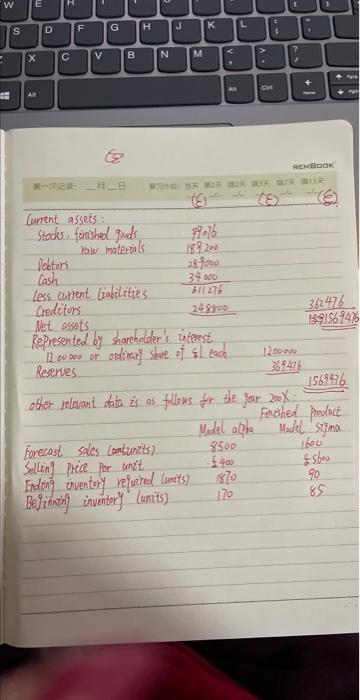 W E
S D F G H J K L
X C V B N M < > ?
Alt Alt Ctrl
(£)
REMBOOK
第一次记录: __月__日 复习计划: 当天 第2天
(£) (£) (£)
Current assets:
Stocks, finished goods 99076
raw materials 189200
Debtors 289000
Cash 34000
611276
Less current liabilities
Creditors 248800 362476
Net assets 1569476
Represented by shareholder's interest
1200000 or ordinary share of £1 each 1200000
Reserves 369476
1569476
other relevant data is as follows for the year 200X:
Finished Product
Model alpha Model sigma
Forecast sales 8500 1600
Selling price per unit £400 £5600
Ending inventory required (units) 1870 90
Beginning inventory (units) 170 85